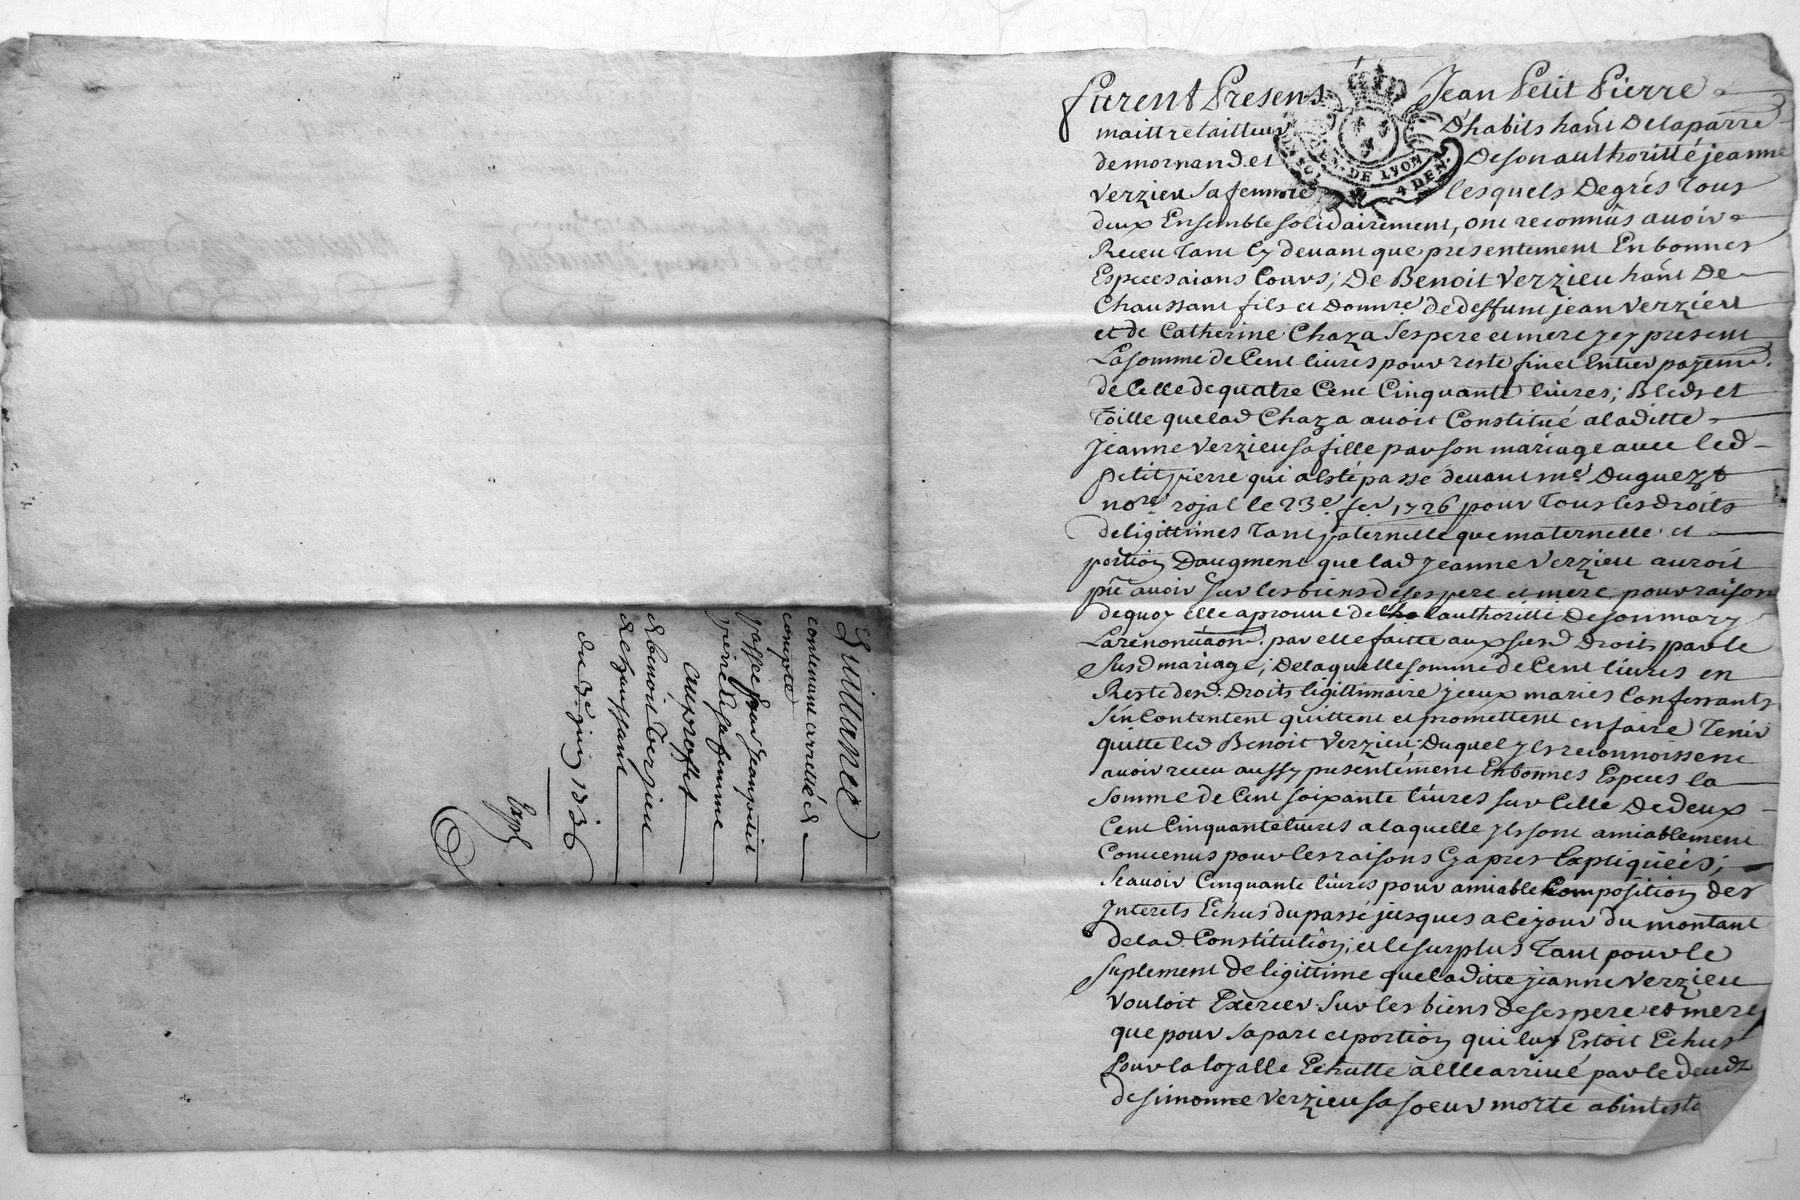 furent Presens Jean Petit Pierre
maittre tailleur D'habits hant De la parre
de mornand. et De son authoritté jeanne
verzieu sa femme lesquels De grés Tous
deux Ensemble solidairement, ont reconnûs avoir
Receu Tant Cy devant que presentement En bonnes
Especes aians Cours; De Benoit verzieu hant De
Chaussant fils et Donnre. de deffunt jean verzieu
et de Catherine Chaza ses pere et mere jcy present
La somme de Cent livres pour reste fin et Entier payemt.
de Celle de quatre Cent Cinquante livres; Bleds et
Toille que lad Chaza avoit Constitué a laditte
Jeanne verzieu sa fille par son mariage avec led
petit pierre qui a Esté passé devant me. Duguezt
nore. rojal le 23e. fer. 1726 pour Tous les droits
de ligittimes Tant paternelle que maternelle et
portion Daugment que lad jeanne verzieu auroit
pû avoir sur les biens de ses pere et mere pour raison
de quoy elle aprouve de l'authoritté De son mary
La renonciaon. par elle faitte aux susd Droits par le
susd mariage; De laquelle somme de Cent livres en
Reste desd. Droits ligittimaire jceux maries Confessants
s'en Contentent quittent et promettent en faire Tenir
quitte led Benoit verzieu; Duquel jls reconnoissent
avoir receu aussy presentement En bonnes Especes la
somme de Cent soixante livres sur Celle De deux
Cent Cinquante livres a laquelle jls sont amiablement
Convenus pour les raisons Cy apres Expliquées;
sçavoir Cinquante livres pour amiable Composition des
Interets Echus du passé jusques a ce jour du montant
de lad Constitution; et le surplus Tant pour le
suplement de ligittime que laditte jeanne verzieu
vouloit Exercer sur les biens de ses pere et mere
que pour sa part et portion qui luy Estoit Echus
Pour la loyalle Echutte a elle arrivé par le deceds
de simonne verzieu sa soeur morte abintesta
Quittance
contenant arretté de
compte
passée par Jean petit
pierre et sa femme
au proffit
de benoit Verzieu
de chaussant
du 3e juin 1736
Expd